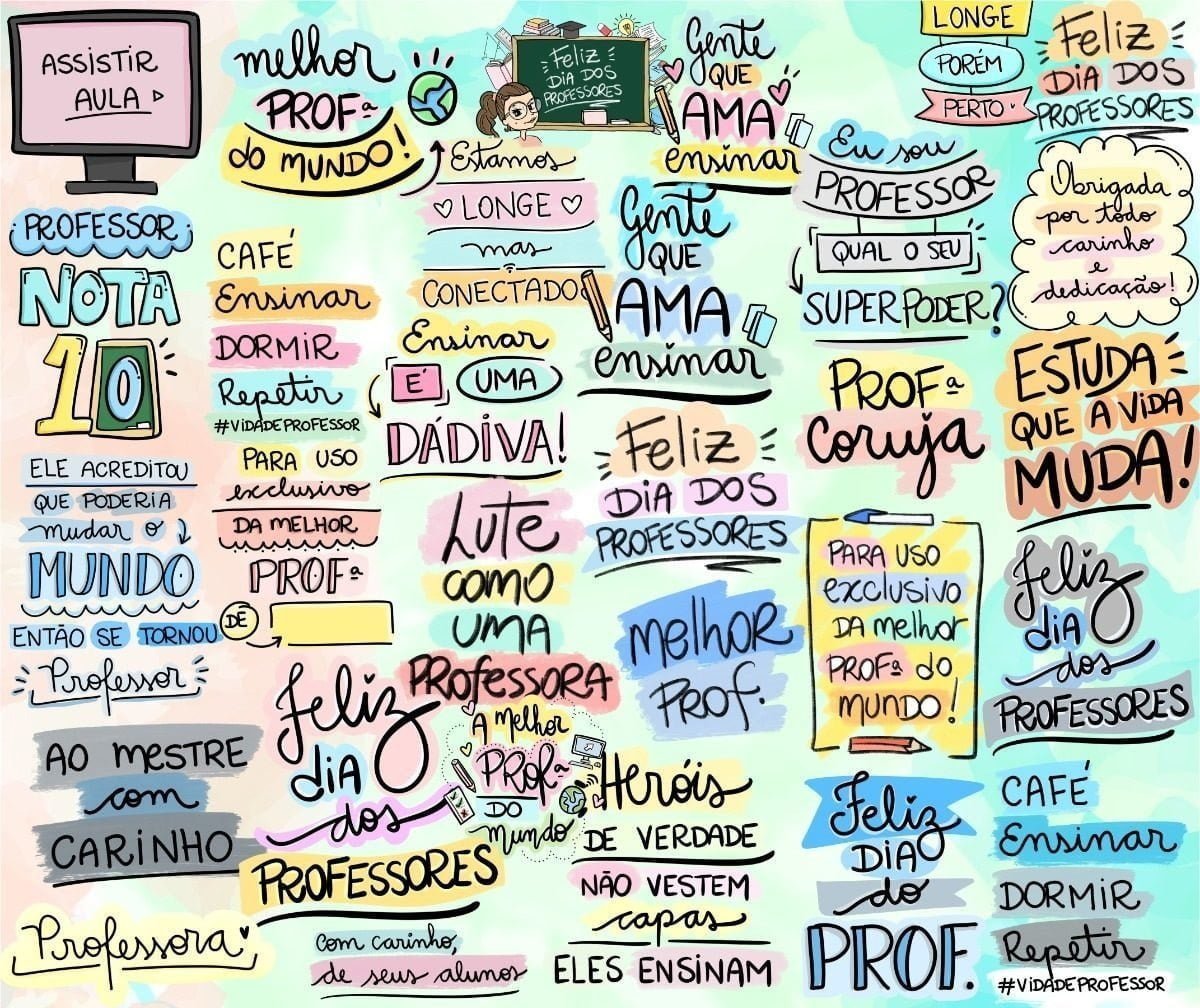 ASSISTIR
AULA
melhor
PROFª
do MUNDO!
FELIZ
DIA DOS
PROFESSORES
Gente
QUE
AMA
ensinar
LONGE
PORÉM
PERTO
Feliz
DIA DOS
PROFESSORES
PROFESSOR
NOTA
10
CAFÉ
Ensinar
DORMIR
Repetir
#VIDADEPROFESSOR
Estamos
LONGE
mas
CONECTADO
Gente
QUE
AMA
ensinar
Eu sou
PROFESSOR
QUAL O SEU
SUPERPODER?
Obrigada
por todo
carinho
e
dedicação!
Ensinar
É UMA
DÁDIVA!
PROFª
coruja
ESTUDA
QUE A VIDA
MUDA!
ELE ACREDITOU
QUE PODERIA
mudar o
MUNDO
ENTÃO SE TORNOU
Professor
PARA USO
exclusivo
DA MELHOR
PROFª
DE
Lute
COMO
UMA
PROFESSORA
Feliz
DIA DOS
PROFESSORES
MELHOR
PROF.
PARA USO
exclusivo
DA melhor
PROFª do
MUNDO!
Feliz
DIA
dos
PROFESSORES
AO MESTRE
com
CARINHO
Feliz
DIA
dos
PROFESSORES
A Melhor
PROFª
DO
Mundo
Heróis
DE VERDADE
NÃO VESTEM
capas
ELES ENSINAM
Feliz
DIA
do
PROF.
CAFÉ
Ensinar
DORMIR
Repetir
#VIDADEPROFESSOR
Professora
com carinho,
de seus alunos